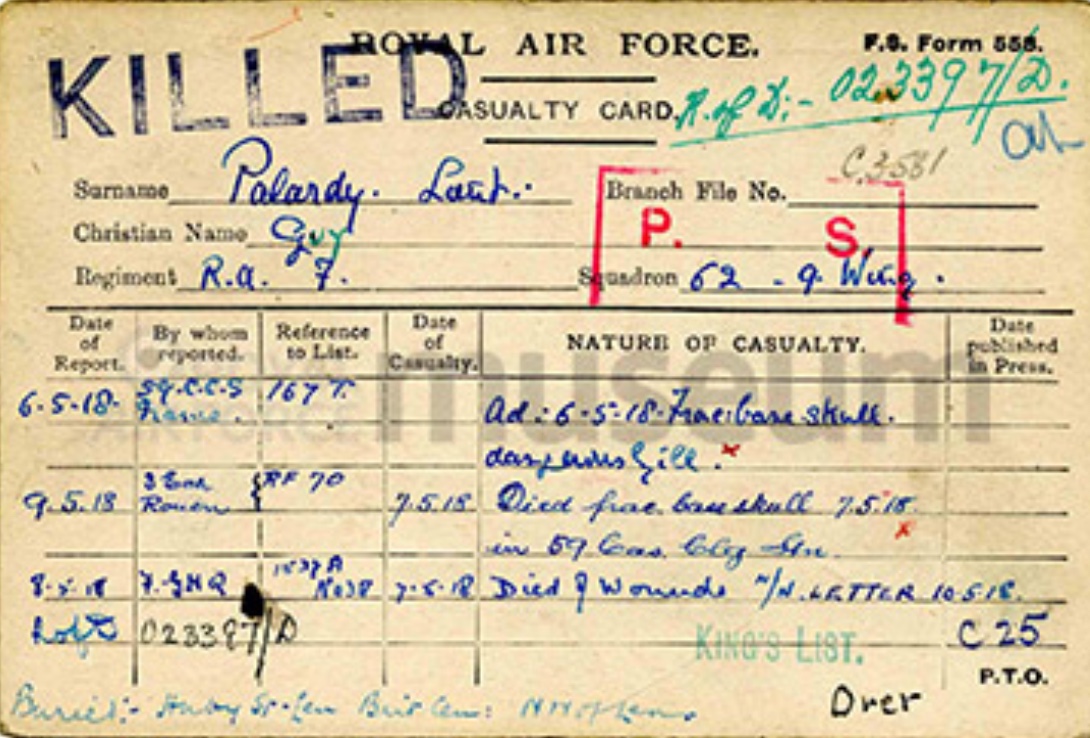 KILLED
ROYAL AIR FORCE.
F.S. Form 558.
CASUALTY CARD.
R. of D:- 023397/D.
C.3581
Surname Palardy. Lieut.
Branch File No.
Christian Name Guy
P. S
Regiment R.a. F.
Squadron 62 - 9 Wing.
Date of Report.
By whom reported.
Reference to List.
Date of Casualty.
NATURE OF CASUALTY.
Date published in Press.
museum
6-5-18. 59.C.C.S France. 167 T. Ad: 6-5-18. Frac: base skull.
dangerously ill. x
9.5.18 3 Rouen RF 70 7.5.18 Died frac. base skull 7.5.18.
x
in 59 Cas. Clrg Stn.
8-5-18 7.GHQ 7-5-18 Died of Wounds LETTER 10.5.18.
023397/D
KING'S LIST.
C 25
P.T.O.
Buried:-
Drer